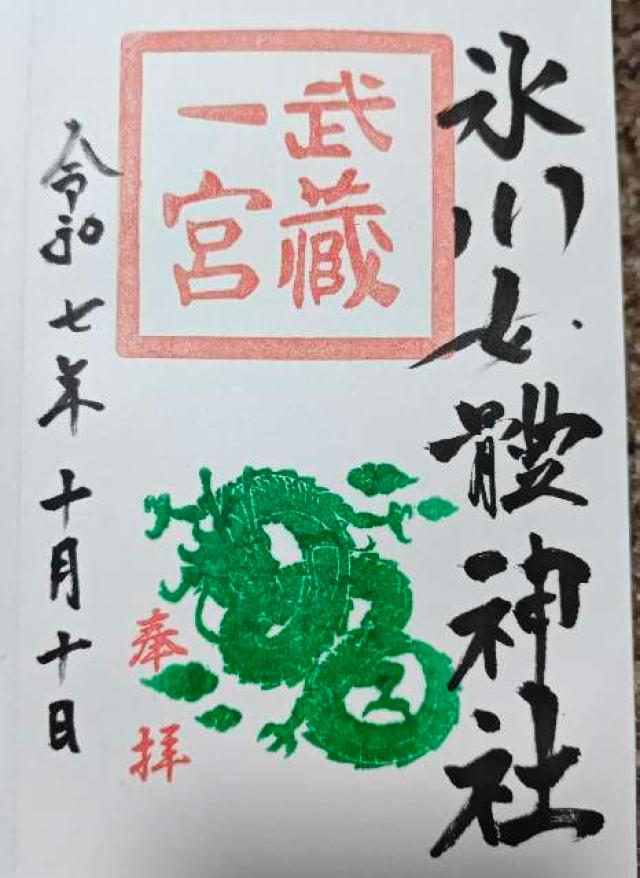 氷川女體神社
武蔵
一宮
奉拝
令和七年十月十日